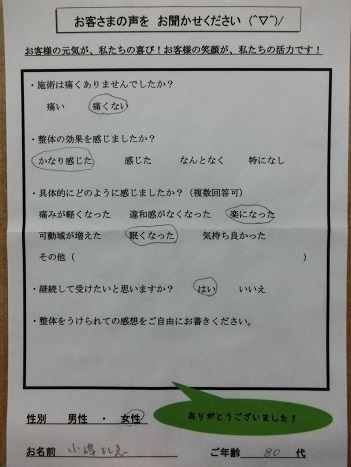 お客さまの声を お聞かせください (^▽^)/
お客様の元気が、私たちの喜び!お客様の笑顔が、私たちの活力です!
・施術は痛くありませんでしたか?
痛い 痛くない
・整体の効果を感じましたか?
かなり感じた 感じた なんとなく 特になし
・具体的にどのように感じましたか?(複数回答可)
痛みが軽くなった 違和感がなくなった 楽になった
可動域が増えた 眠くなった 気持ち良かった
その他( )
・継続して受けたいと思いますか? はい いいえ
・整体をうけられての感想をご自由にお書きください。
ありがとうございました!
性別 男性 ・ 女性
お名前 小嶋 ご年齢 80 代